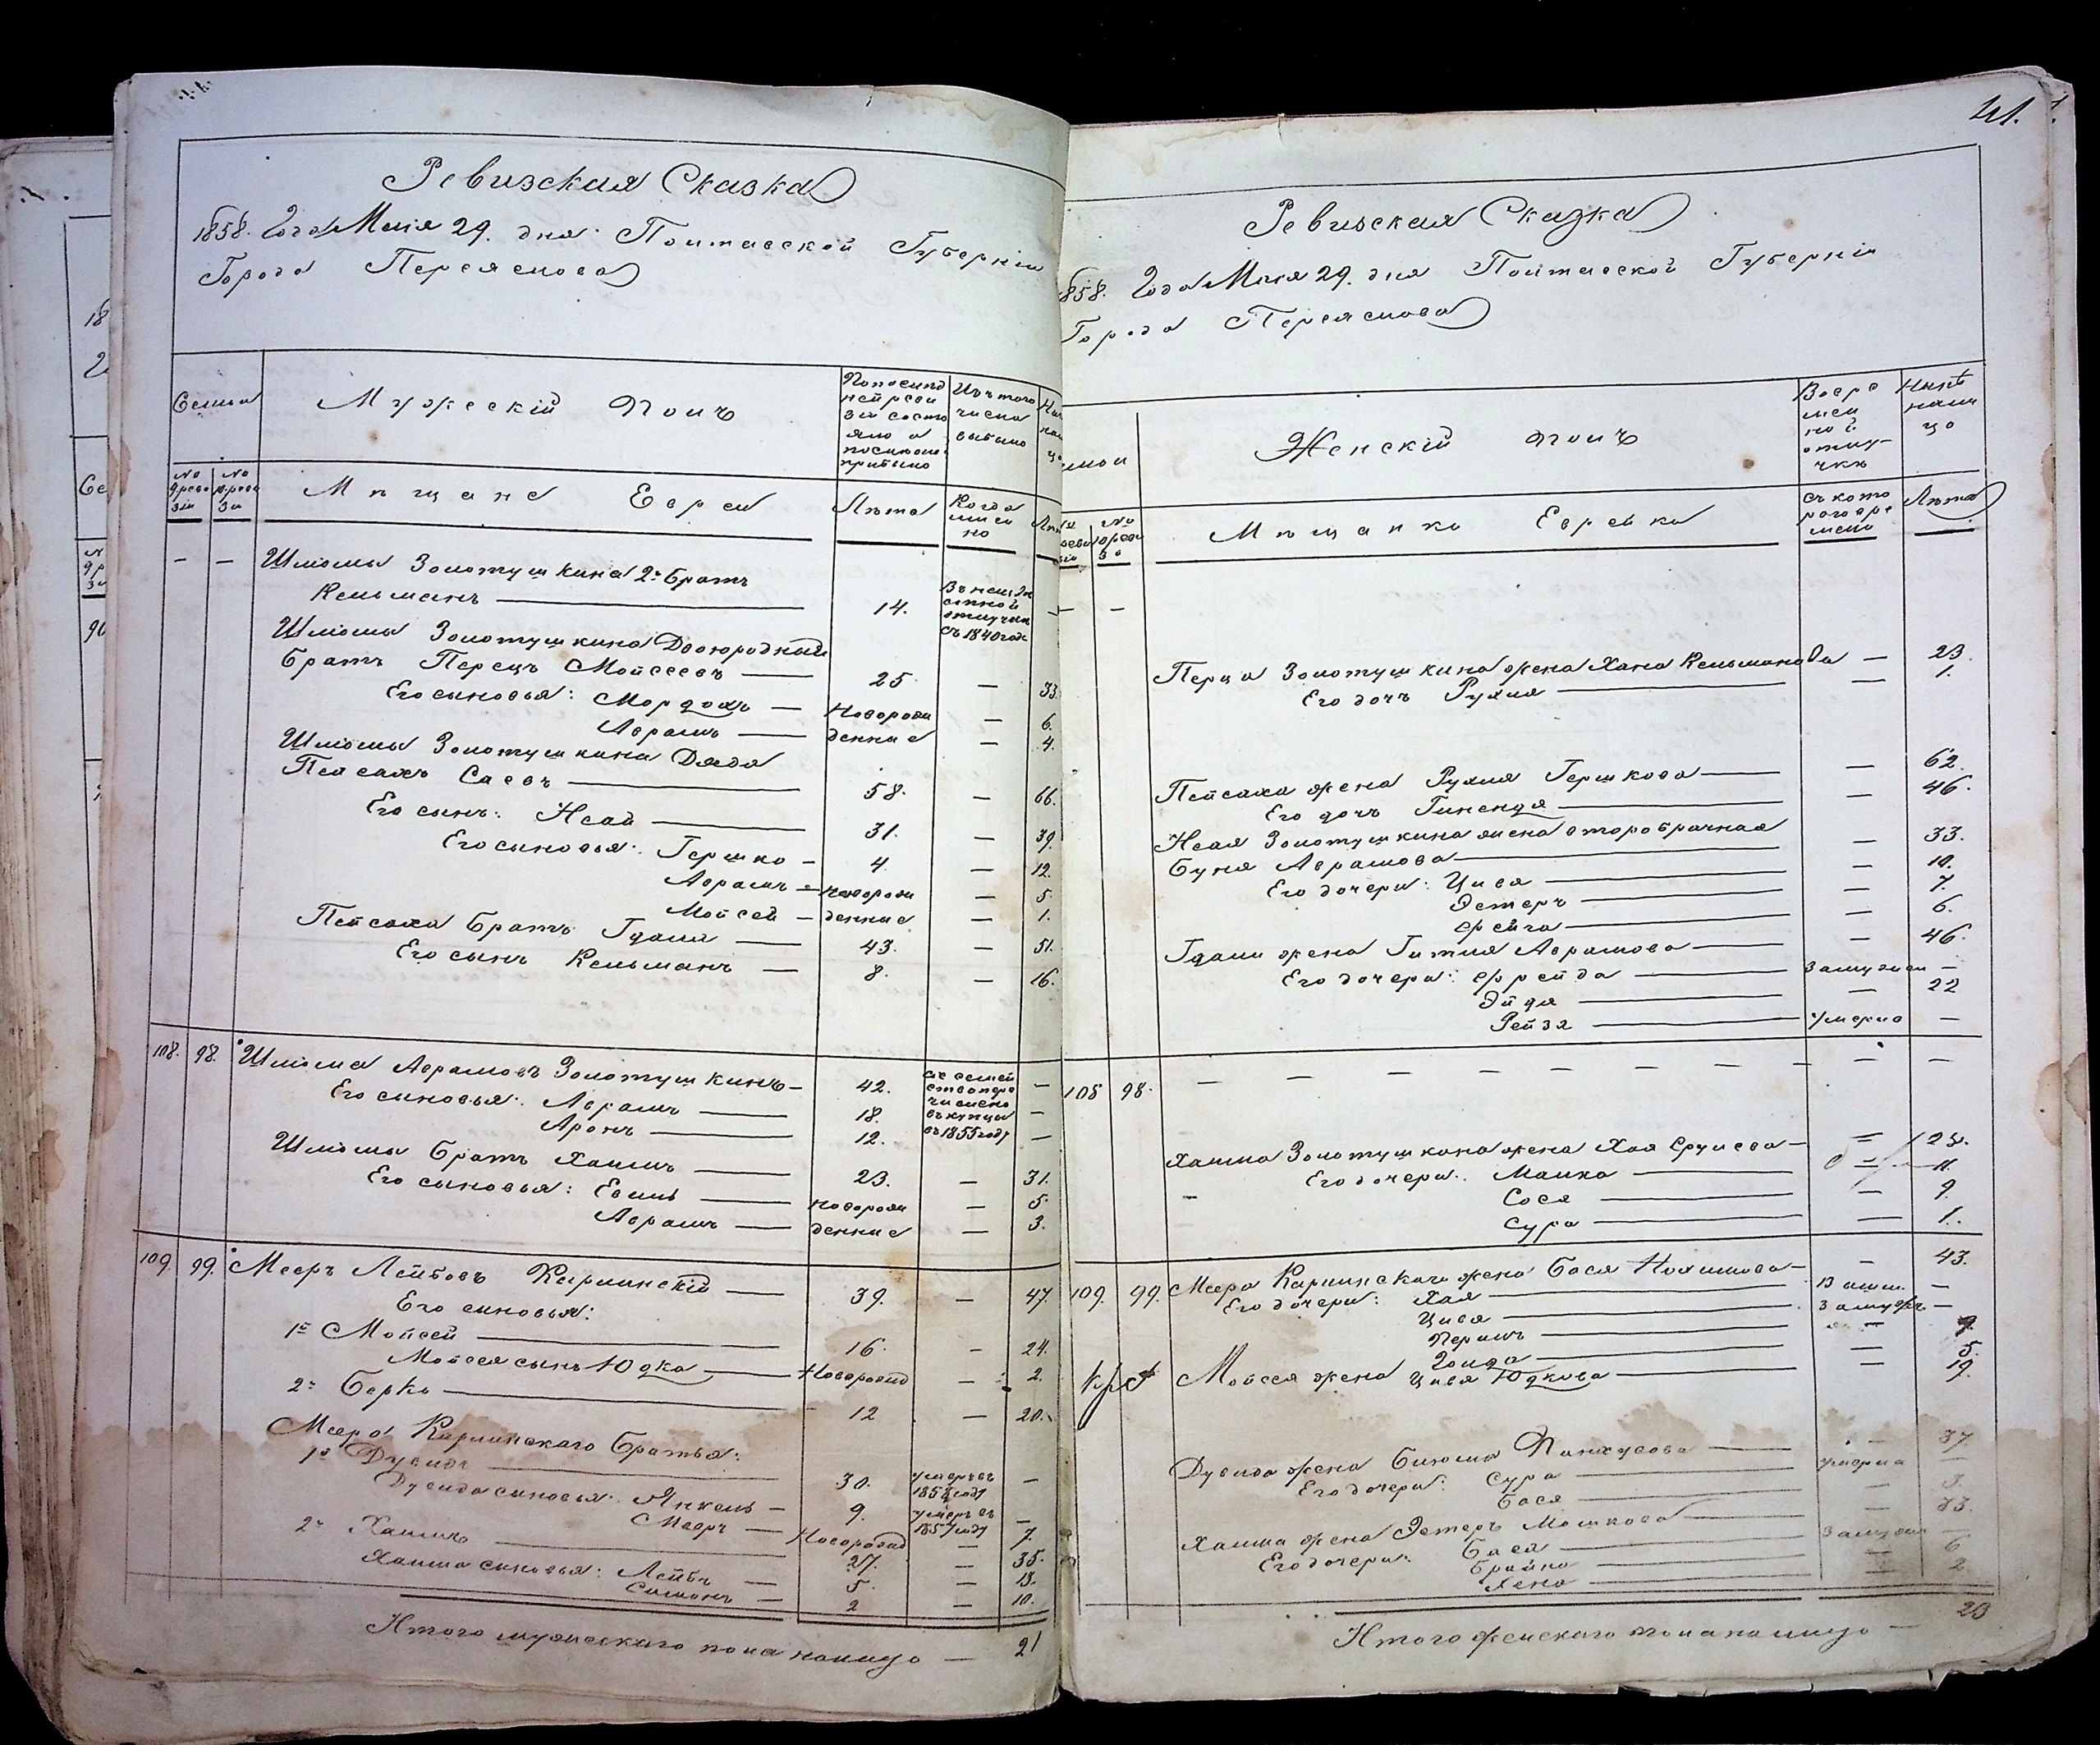 Ревизская Сказка
1858. Года Маія 29. дня Полтавской Губерніи
Города Переяслова
Семьи
Мужескій полъ
По послѣд
ней реви
зіи состо
яло и
послѣ оной
прибыло
Изъ того
числа
выбыло
№
9 реви
зіи
№
10 реви
зіи
Мѣщане Евреи
Лѣта
Когда
имен
но
— — Шліомы Золотушкина 2й Братъ
Кельманъ — 14. —
въ неиз
вѣстной
отлучкѣ
съ 1840 года
Шліомы Золотушкина Двоюродный
Братъ Перецъ Мойсеевъ — 25 — 33.
Его сыновья: Мордохъ — Новорож — 6.
Аврамъ — денные — 4.
Шліомы Золотушкина Дядя
Пейсахъ Саевъ — 58. — 66.
Его сынъ: Исай — 31. — 39.
Его сыновья: Гершко — 4. — 12.
Аврамъ — новорож — 5.
Мойсей — денные — 1.
Пейсаха Братъ Гдаля — 43. — 51.
Его сынъ Кельманъ — 8. — 16.
108. 98. Шліома Аврамовъ Золотушкинъ — 42. —
Его сыновья: Аврамъ — 18. —
Аронъ — 12. —
съ семей
ствомъ пере
численъ
въ купцы
въ 1855 году
Шліомы Братъ Хаимъ — 23. — 31.
Его сыновья: Евель — новорож — 5.
Аврамъ — денные — 3.
109 99. Мееръ Лейбовъ Карлинскій — 39. — 47.
Его сыновья:
1й Мойсей — 16. — 24.
Мойсея сынъ Юдка — Новорожд — 2.
2й Берко — 12 — 20.
Меера Карлинскаго Братья:
1й Дувидъ — 30. умеръ въ —
Дувида сыновья: Янкель — 9. умеръ въ —
1857 году
Мееръ — Новорожд — 7.
2й Хаимъ — 27. — 35.
Хаима сыновья: Лейба — 5. — 13.
Симонъ — 2 — 10.
Итого мужескаго пола налицо — 21
41.
Ревизская Сказка
1858. Года Маія 29. дня Полтавской Губерніи
Города Переяслова
Женскій полъ
Во вре
мен
ной
отлу
чкѣ
Нынѣ
нали
цо
№
10 реви
зіи
Мѣщанки Еврейки
Съ кото
раго вре
мени
Лѣта
— —
Перца Золотушкина жена Хана Кельманова — 23.
Его дочь Рухля — 1.
Пейсаха жена Рухля Гершкова — 62.
Его дочь Гинендя — 46.
Исая Золотушкина жена второбрачная
Буня Аврамова — 33.
Его дочери: Цивя — 10.
Эстеръ — 7.
Фейга — 6.
Гдали жена Гитля Аврамова — 46.
Его дочери: Фрейда — Замужем —
Эйдя — 22
Рейзя — умерла —
105 98. — — — — — — — — — —
Хаима Золотушкина жена Хая Сруlева — 23.
Его дочери: Малка — 11.
Сося — 9.
Сура — 1.
109. 99. Меера Карлинскаго жена Бася Нохимова — 43.
Его дочери: Хая — Замуж. —
Цивя — Замужъ —
Перль — 7.
Голда — 5.
Мойсея жена Цивя Юдкова — 19.
Дувида жена Бицля Пинхусова — 37
Его дочери: Сура — умерла —
Бася — 3.
Хаима жена Эстеръ Мошкова — 33.
Его дочери: Бася — Замужем —
Брайна — 6
Хена — 2
Итого женскаго пола налицо — 20